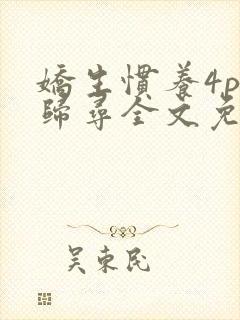 嬌生慣養4p
歸尋全文免
吴東民